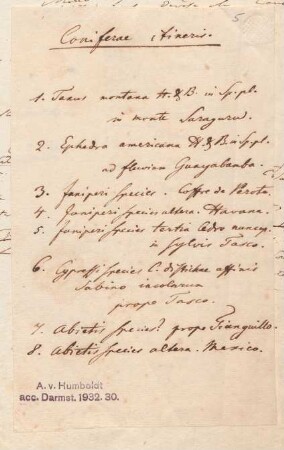 5
Coniferae itineris.
1. Taxus montana H. & B. in Sp. pl.
in monte Saraguru.
2. Ephedra americana H & B in Sp pl
ad fluvium Guayabamba.
3. Juniperi species. Coffre de Perote.
4. Juniperi species altera. Havana.
5 Juniperi species tertia Cedro
in sylvis Tasco.
6. Cypressi species C. distichae affinis
Sabino incolarum
prope Tasco.
7. Abietis species? prope Tianguillo.
8. Abietis species altera. Mexico.
A. v. Humboldt
acc. Darmst. 1932. 30.